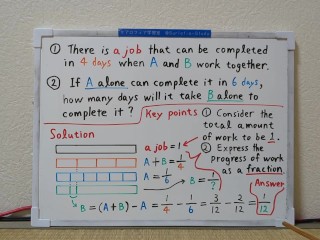 ① There is a job that can be completed
in 4 days when A and B work together.
② If A alone can complete it in 6 days,
how many days will it take B alone to
complete it?
Key points
① Consider the
total amount
of work to be 1.
② Express the
progress of work
as a fraction.
Solution
a job = 1
A + B = 1/4
A = 1/6
B = 1/?
Answer
B = (A + B) - A = 1/4 - 1/6 = 3/12 - 2/12 = 1/12